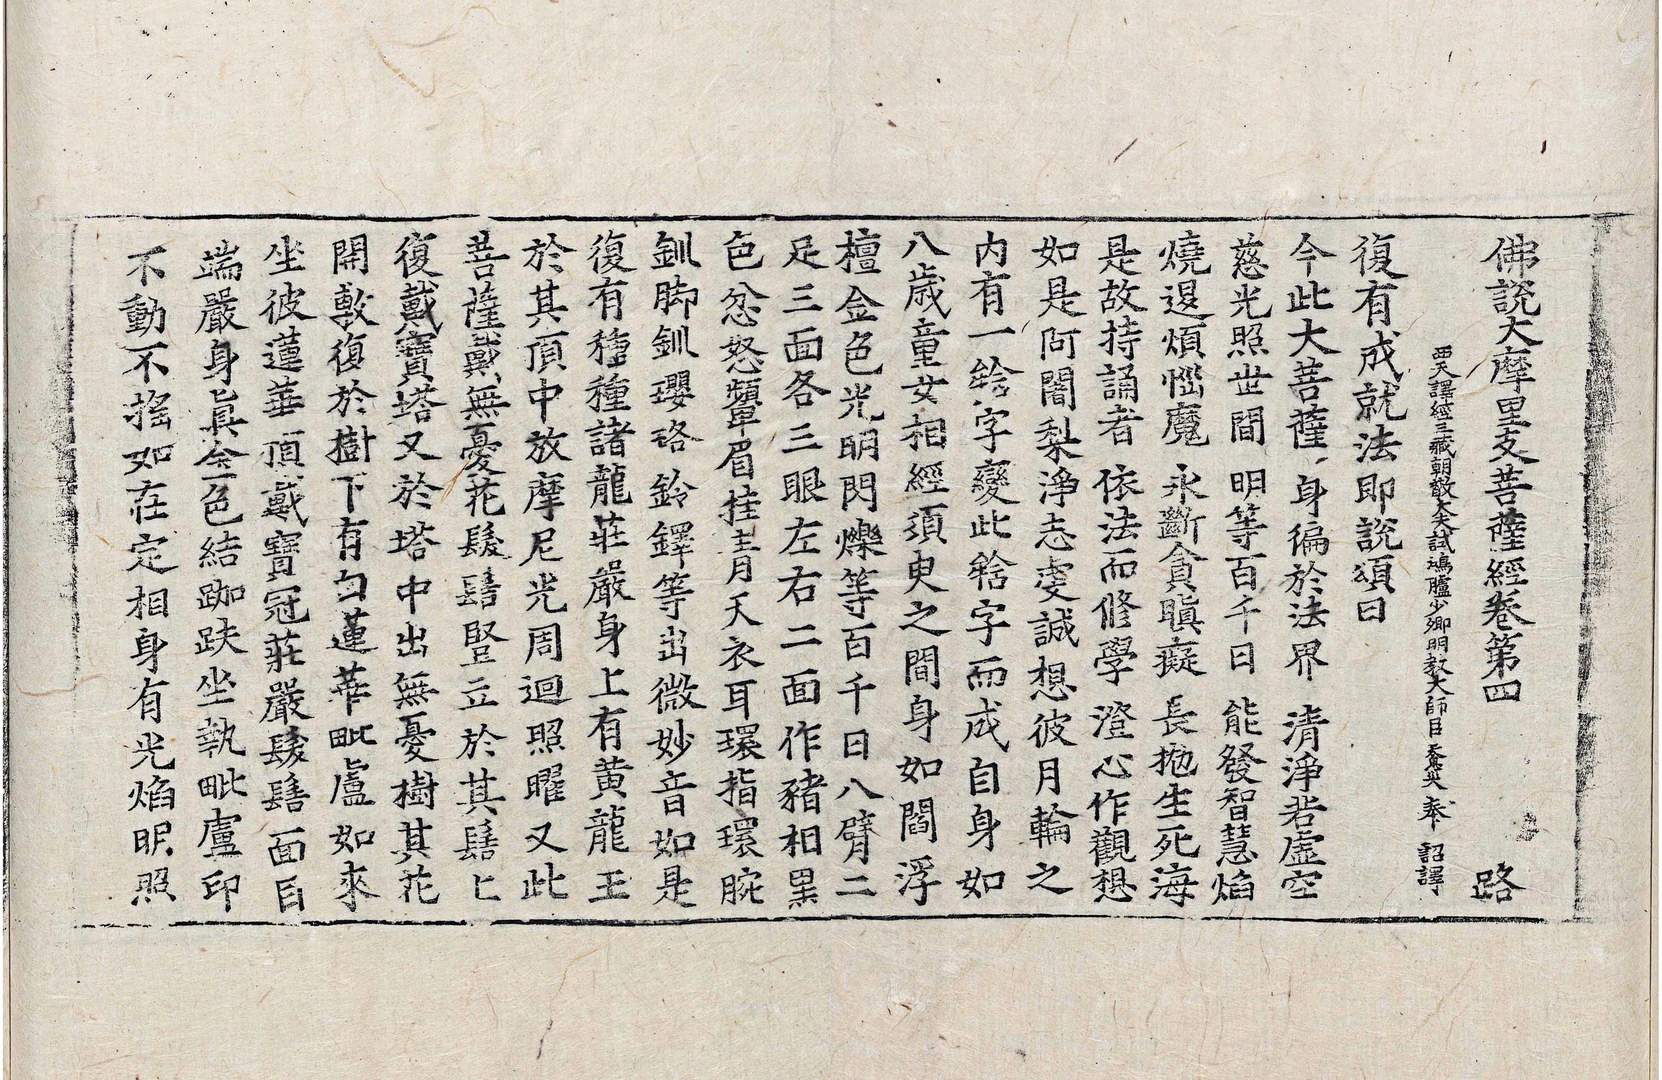 佛說大摩里支菩薩經卷第四 路
西天譯經三藏朝散大夫試鴻臚少卿明教大師臣 奉 詔譯
復有成就法即說頌曰
今此大菩薩 身徧於法界 清淨若虛空
慈光照世間 明等百千日 能發智慧焰
燒遏煩惱魔 永斷貪瞋癡 長抱生死海
是故持誦者 依法而修學 澄心作觀想
如是阿闍梨淨志虔誠想彼月輪之
內有一𤙖字變此𤙖字而成自身如
八歲童女相經須臾之間身如閻浮
檀金色光明閃爍等百千日八臂二
足三面各三眼左右二面作豬相黑
色忿怒顰眉挂青天衣耳環指環腕
釧脚釧瓔珞鈴鐸等出微妙音如是
復有種種諸龍莊嚴身上有黃龍王
於其頂中放摩尼光周迴照曜又此
菩薩戴無憂花鬘髻竪立於其髻上
復戴寶塔又於塔中出無憂樹其花
開敷復於樹下有白蓮華毗盧如來
坐彼蓮華頂戴寶冠莊嚴鬘髻面目
端嚴身眞金色結跏趺坐執毗盧印
不動不搖如在定相身有光焰明照